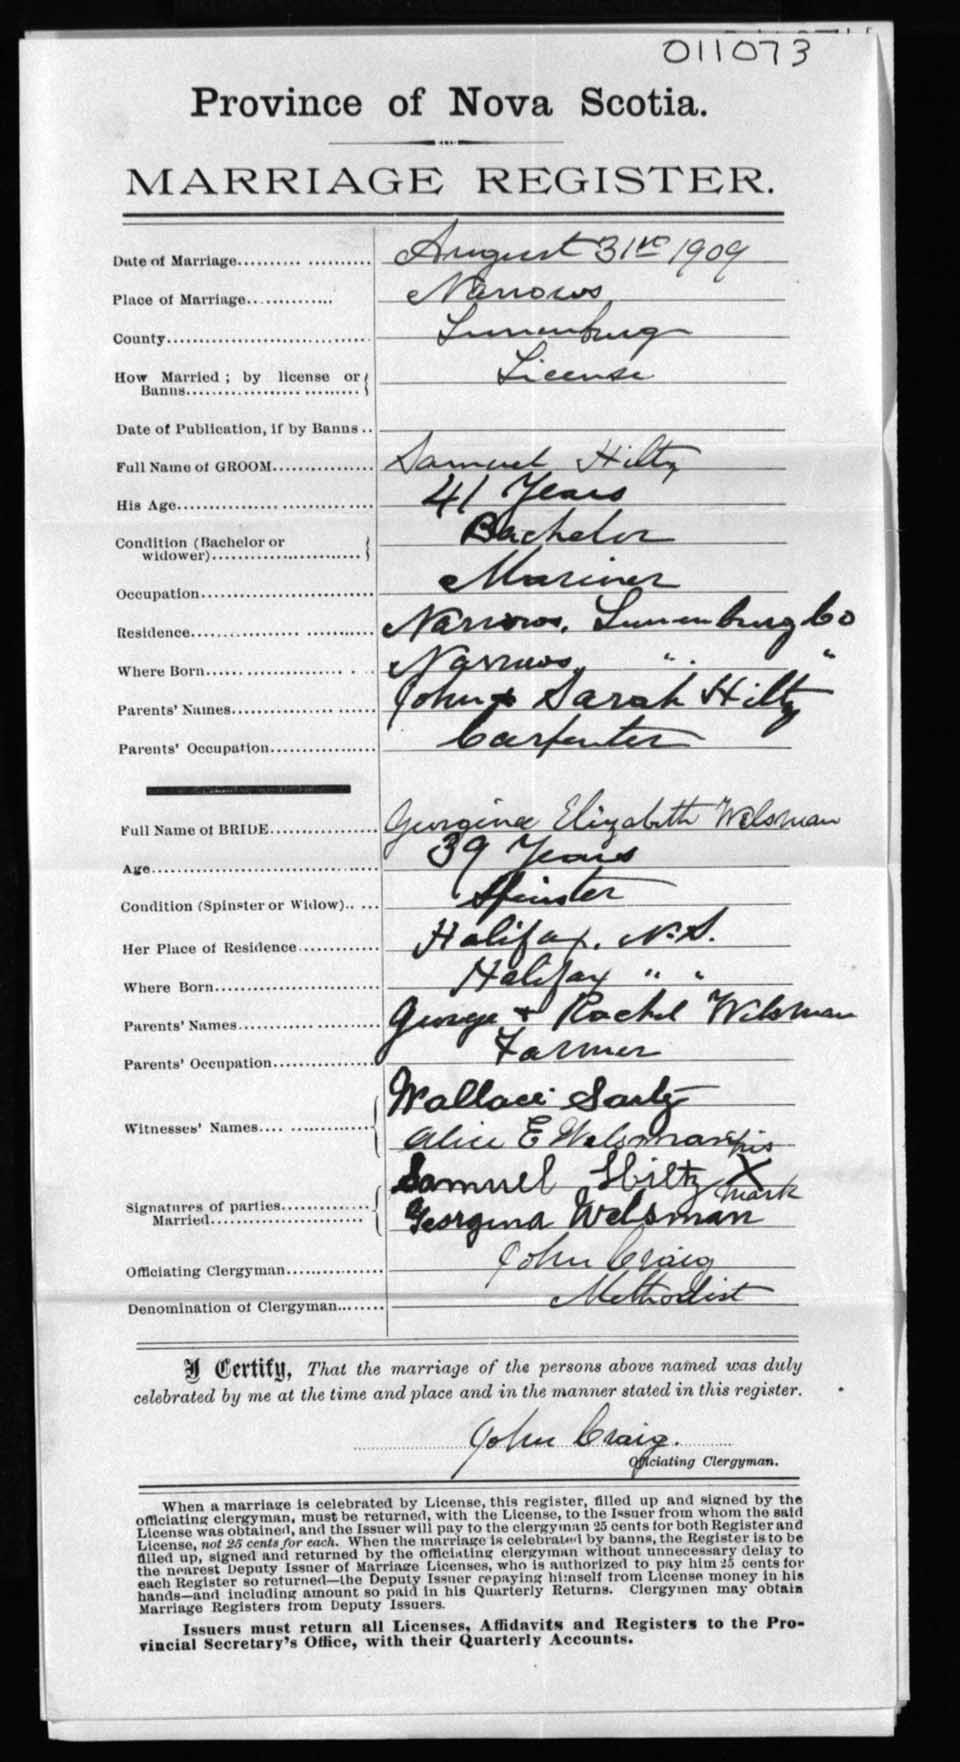 011073
Province of Nova Scotia.
MARRIAGE REGISTER.
Date of Marriage.................... August 31st 1909
Place of Marriage............. Narrows
County............................... Lunenburg
How Married; by license or License
Banns............................
Date of Publication, if by Banns ..
Full Name of GROOM................ Samuel Hiltz
His Age.............................. 41 Years
Condition (Bachelor or Bachelor
widower)........................
Occupation........................... Mariner
Residence............................ Narrows, Lunenburg Co
Where Born......................... Narrows, " "
Parents' Names...................... John & Sarah Hiltz
Parents' Occupation................ Carpenter
Full Name of BRIDE................. Georgina Elizabeth Welsman
Age................................... 39 Years
Condition (Spinster or Widow)..... Spinster
Her Place of Residence............. Halifax, N.S.
Where Born......................... Halifax " "
Parents' Names...................... George & Rachel Welsman
Parents' Occupation................ Farmer
Wallace
Witnesses' Names.... .............
Alice E Welsman
his
Samuel Hiltz X
mark
Signatures of parties..............
Married........................
Georgina Welsman
Officiating Clergyman............... John Craig
Denomination of Clergyman........ Methodist
I Certify, That the marriage of the persons above named was duly
celebrated by me at the time and place and in the manner stated in this register.
John Craig.
Officiating Clergyman.
When a marriage is celebrated by License, this register, filled up and signed by the
officiating clergyman, must be returned, with the License, to the Issuer from whom the said
License was obtained, and the Issuer will pay to the clergyman 25 cents for both Register and
License, not 25 cents for each. When the marriage is celebrated by banns, the Register is to be
filled up, signed and returned by the officiating clergyman without unnecessary delay to
the nearest Deputy Issuer of Marriage Licenses, who is authorized to pay him 25 cents for
each Register so returned—the Deputy Issuer repaying himself from License money in his
hands—and including amount so paid in his Quarterly Returns. Clergymen may obtain
Marriage Registers from Deputy Issuers.
Issuers must return all Licenses, Affidavits and Registers to the Pro-
vincial Secretary's Office, with their Quarterly Accounts.